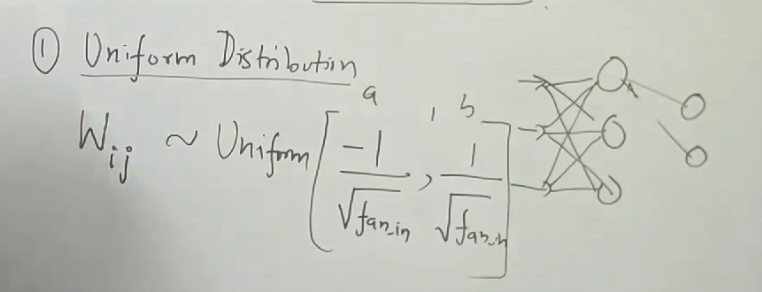 ① Uniform Distribution
a , b
Wij ~ Uniform [ -1/√fan_in , 1/√fan_in ]